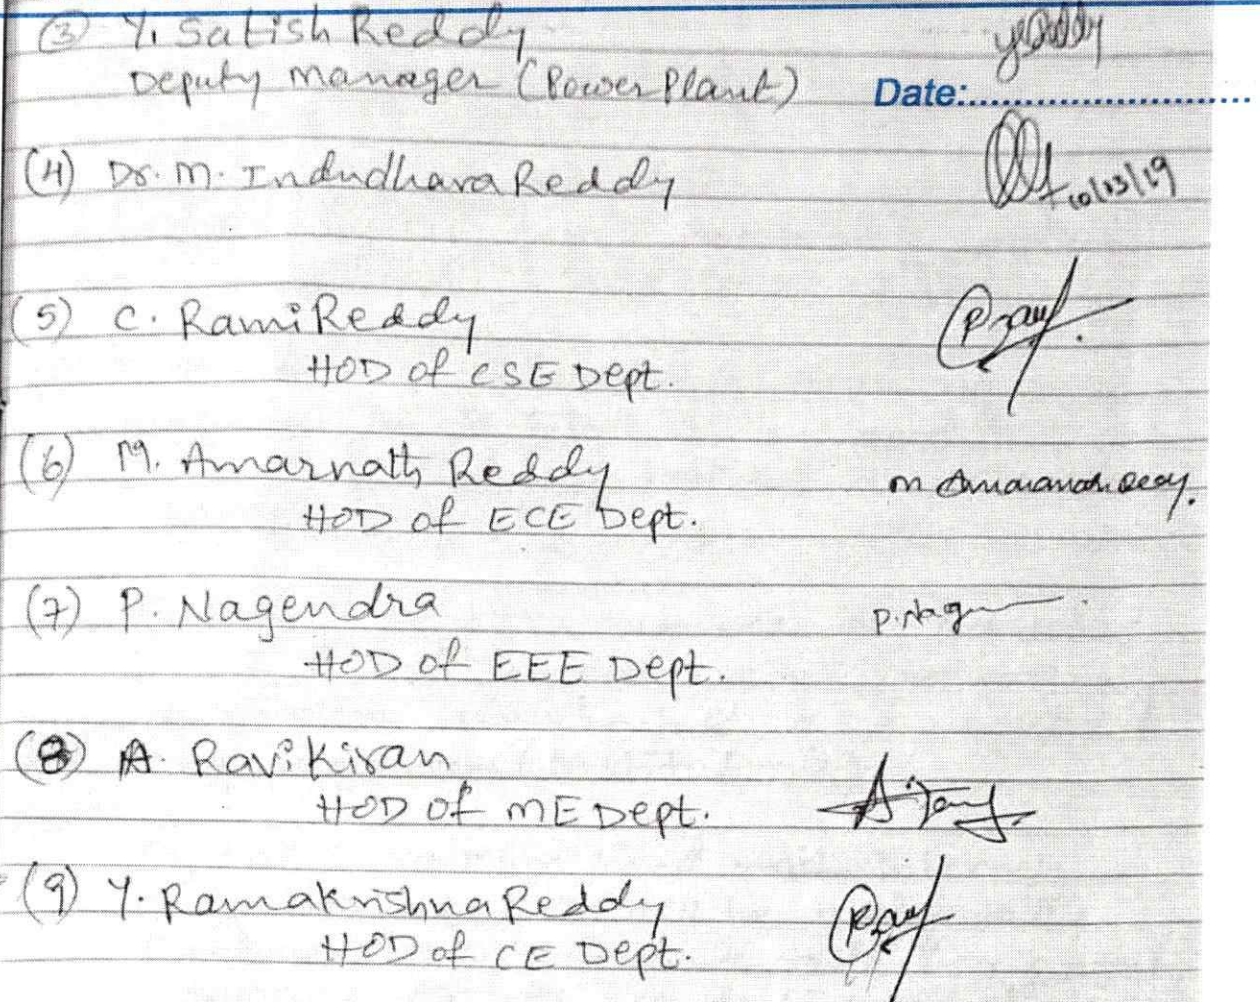 (3) Y. Satish Reddy
Deputy manager (Power Plant)
Date:............................
(4) Dr. M. Indudhara Reddy
10/03/19
(5) C. Rami Reddy
HOD of CSE Dept.
(6) M. Amarnath Reddy
HOD of ECE Dept.
(7) P. Nagendra
P. Nag
HOD of EEE Dept.
(8) A. Ravi Kiran
HOD of ME Dept.
(9) Y. Ramakrishna Reddy
HOD of CE Dept.